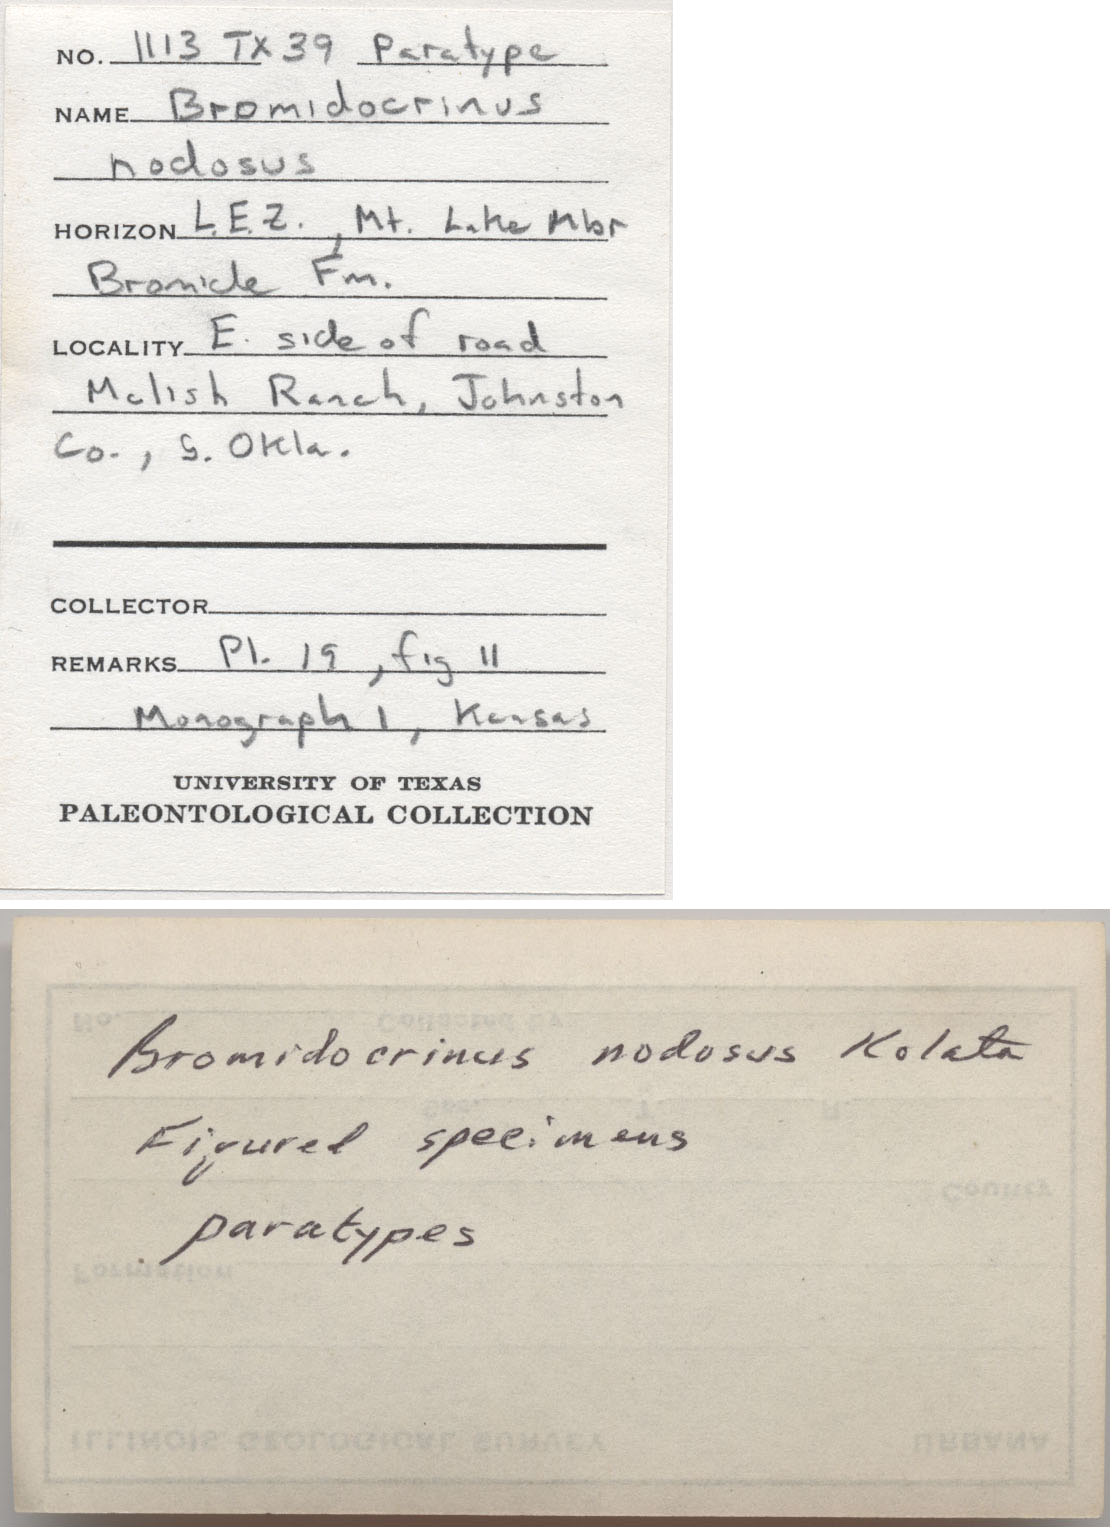 NO. 1113 TX 39 Paratype
NAME Bromidocrinus
nodosus
HORIZON L.E.Z., Mt. Lake Mbr
Bromide Fm.
LOCALITY E. side of road
Mclish Ranch, Johnston
Co., S. Okla.
COLLECTOR
REMARKS Pl. 19, fig 11
Monograph 1, Kansas
UNIVERSITY OF TEXAS
PALEONTOLOGICAL COLLECTION
Bromidocrinus nodosus Kolata
Figured specimens
paratypes
No. Collected by
Sec. T. R.
County
Formation
ILLINOIS GEOLOGICAL SURVEY URBANA